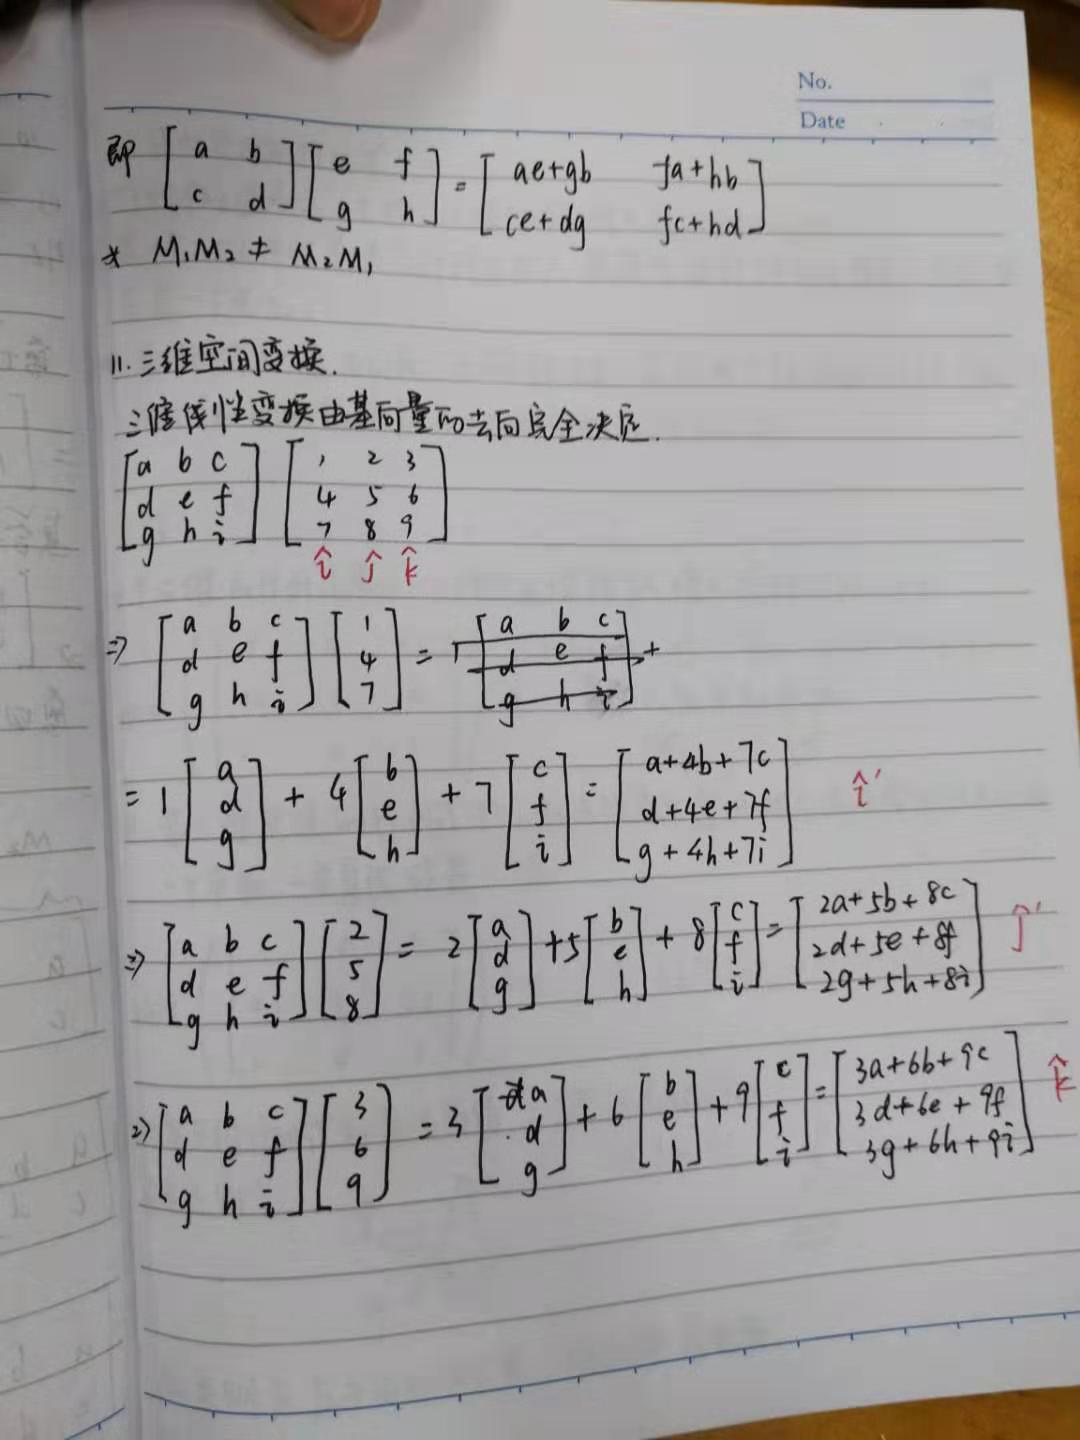 No.
Date
即 [a b; c d] [e f; g h] = [ae+gb fa+hb; ce+dg fc+hd]
* M₁M₂ ≠ M₂M₁
11. 三维空间变换.
三维线性变换由基向量的去向完全决定.
[a b c; d e f; g h i] [1 2 3; 4 5 6; 7 8 9]
î ĵ k̂
⇒ [a b c; d e f; g h i] [1; 4; 7] = 1 [a b c; d e f; g h i] +
= 1 [a; d; g] + 4 [b; e; h] + 7 [c; f; i] = [a+4b+7c; d+4e+7f; g+4h+7i] î'
⇒ [a b c; d e f; g h i] [2; 5; 8] = 2 [a; d; g] + 5 [b; e; h] + 8 [c; f; i] = [2a+5b+8c; 2d+5e+8f; 2g+5h+8i] ĵ'
⇒ [a b c; d e f; g h i] [3; 6; 9] = 3 [a; d; g] + 6 [b; e; h] + 9 [c; f; i] = [3a+6b+9c; 3d+6e+9f; 3g+6h+9i] k̂'